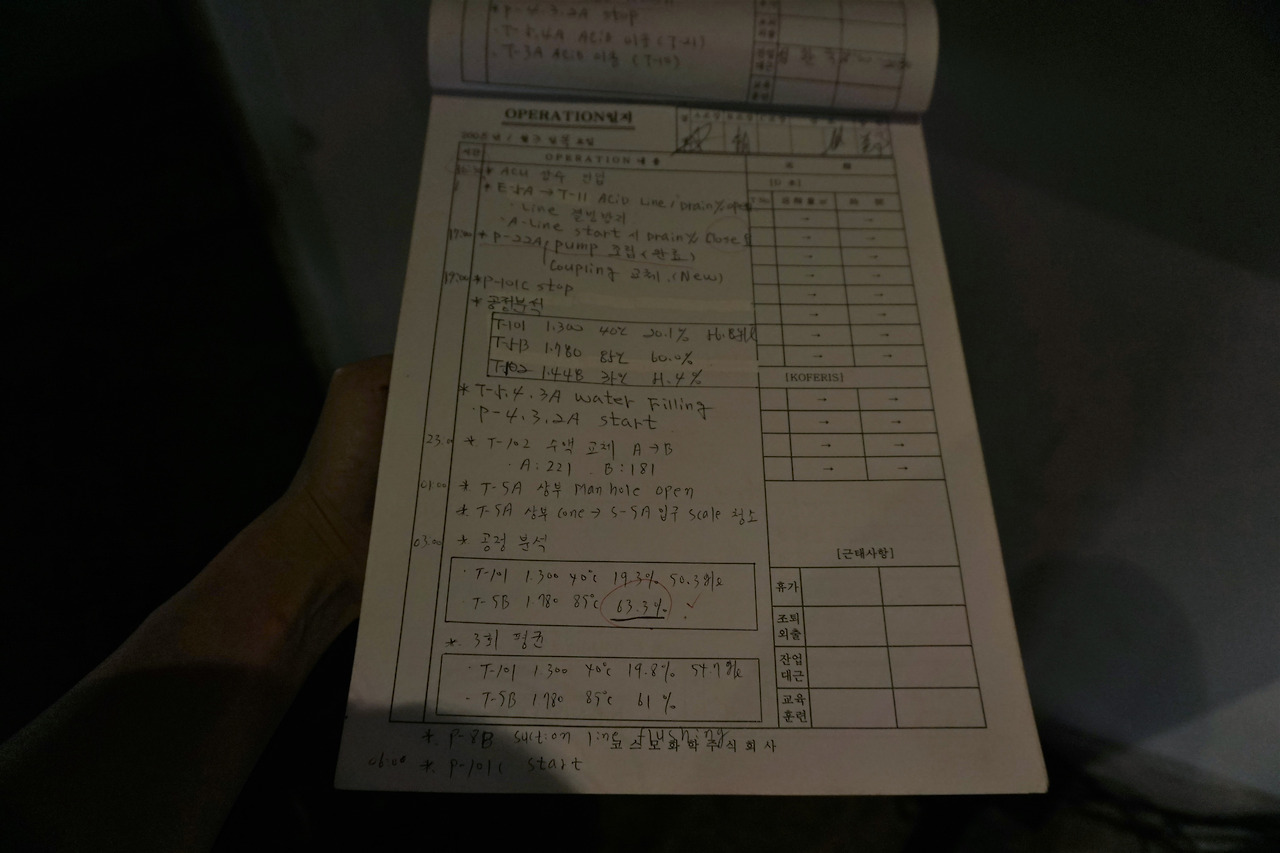 * P-4.3.2A stop
· T-5.4A ACID 이송 (T-21)
· T-3A ACID 이송 (T-19)
OPERATION일지
시간
OPERATION 내용
[KOFERIS]
* E-5A → T-11 ACID Line / Drain% open
· Line 결빙방지
· A-Line start 시 Drain% Close 요
* P-22A pump 조립 (완료)
Coupling 교체 (New)
19:00 * P-101C stop
* 공정분석
T-101 1.300 40℃ 20.1%
T-5B 1.780 85℃ 60.0%
T-102 1.448
* T-5.4.3A water Filling
· P-4.3.2A start
* T-102 수액 교체 A→B
· A: 221 B: 181
01:00 * T-5A 상부 Manhole open
* T-5A 상부 Cone → S-5A 입구 scale 청소
03:00 * 공정 분석
· T-101 1.300 40℃ 19.3% 50.3g/l
· T-5B 1.780 85℃ 63.3%
* 3회 평균
· T-101 1.300 40℃ 19.8% 54.7g/l
- T-5B 1.780 85℃ 61%
[근태사항]
휴가
조퇴
외출
잔업
대근
교육
훈련
* P-8B suction line flushing
코스모화학주식회사
06:00 * P-101C start